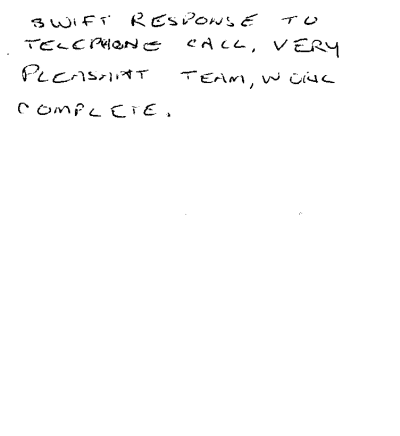 SWIFT RESPONSE TO
TELEPHONE CALL, VERY
PLEASANT TEAM, WORK
COMPLETE.